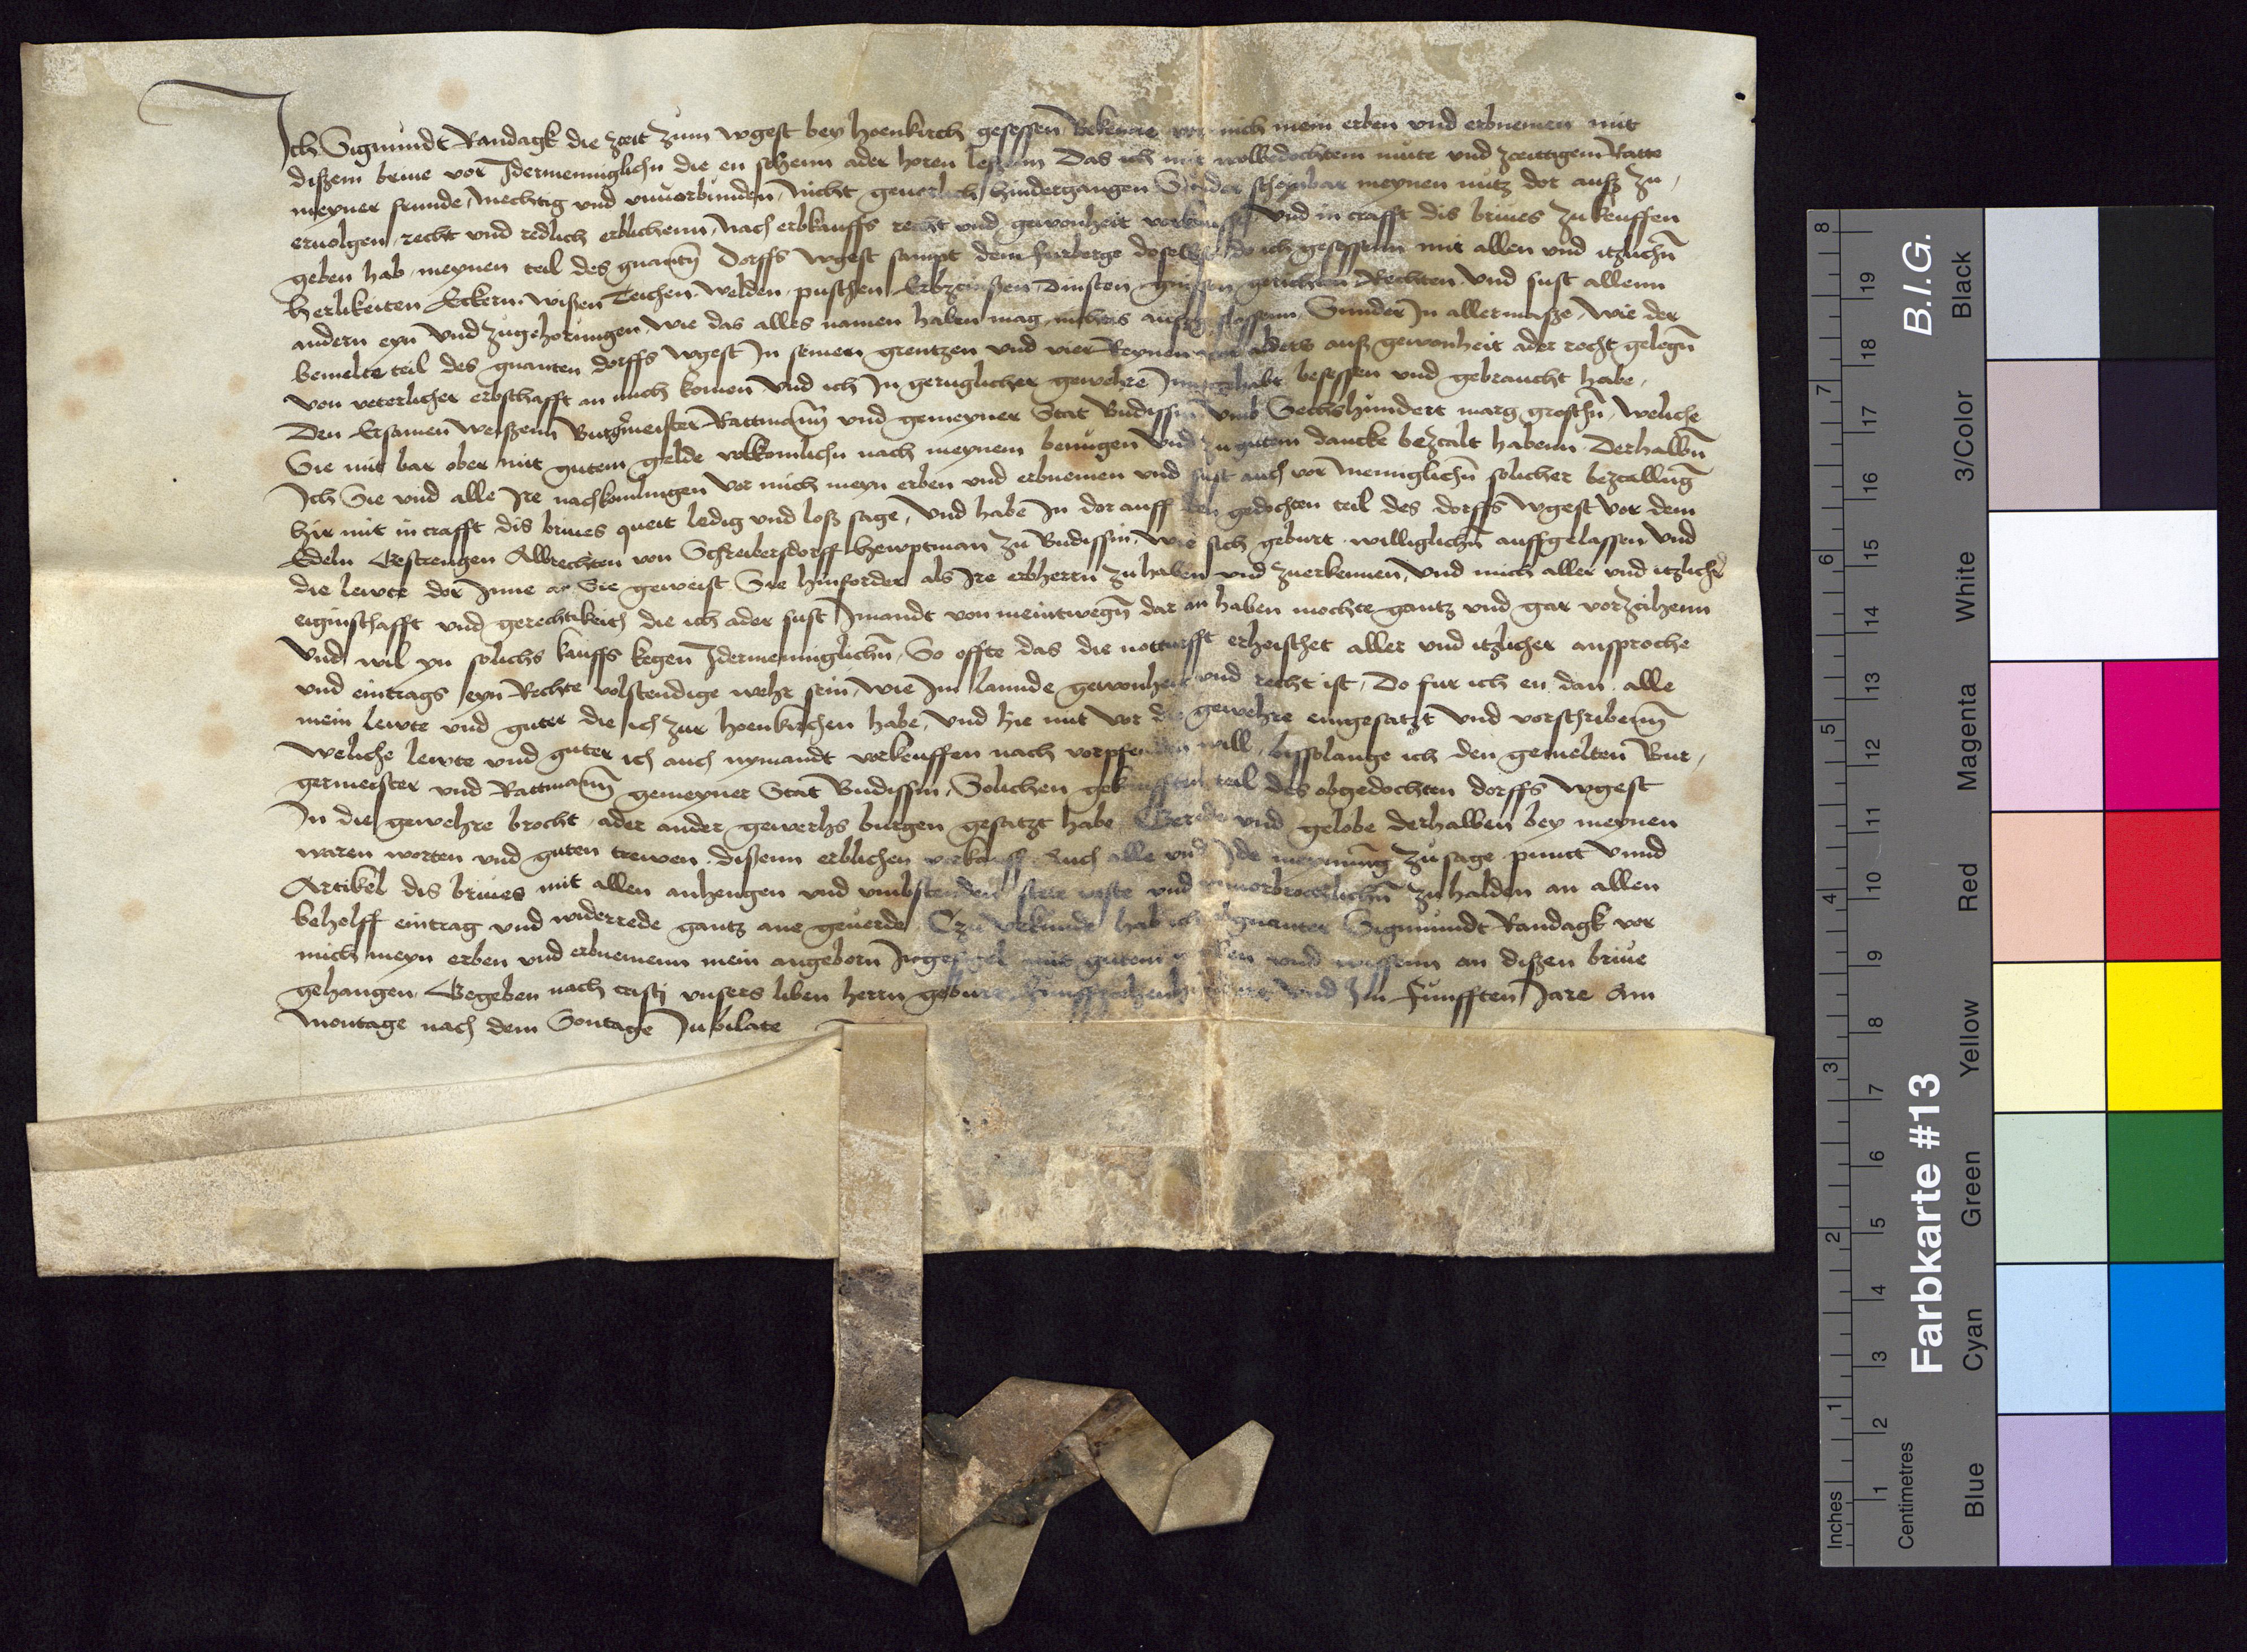 Ich Sigmundt Randagk die zceit zum wgest bey hoenkirch gesessen Bekenne vor mich mein erben vnd erbnemen mit
disem briue vor Idermenniglichn die en sehenn ader horen leszenn Das ich mit wolbedochtem mute vnd zceittigem Ratte
meyner frunde, Mechtig vnd vnuorbunden, nicht geuerlich hindergangen Sunder scheynbar meynen nutz dor ausz zu,
eruolgen, recht vnd redlich erblichenn, nach erbkauffs recht vnd gewonheit vorkaufft vnd in crafft dis briues zu keuffen
geben hab, meynen teil des gnantn Dorffs wgest sampt dem furberge doselbst do ich gesessenn mit allen vnd itzlichn
Herlikeiten Eckern wißen Teichen welden puschen Erbzcinßen Dinsten gerichten Rechten vnd sust allenn
andern eyn vnd zugehorungen wie das alles namen haben mag, nichtes auszgeslossenn Sunder In allermasze, wie der
bemelte teil des gnanten dorffs wgest In seinen grentzen vnd vier Reynen vor alders ausz gewonheit ader recht gelegn
von veterlicher erbschafft an mich komen vnd ich In geruglicher gewehre Inngehabt besessen vnd gebraucht habe,
Den Ersamen weiszenn Burgermeister Rattmann vnd gemeyner Stat Budissin vmb Sechshundert marg groschn, weliche
Sie mir bar ober mit gutem gelde volkomlichn nach meynem benugen vnd zu gutem dancke bezcalt habenn Derhalbn
Ich Sie vnd alle Ire nachkomlingen vor mich meyn erben vnd erbnemen vnd sust auch vor Menniglichn solicher bezcallung
hir mit in crafft dis briues queit ledig vnd losz sage, Vnd habe In dor auff den gedochten teil des dorffs wgest vor dem
Edeln Gestrengen Albrechten von Schreibersdorff Hewptman zu Budissin, wie sich geburt williglichn auffgelassen vnd
die lewte dor Inne an Sie geweist Sie hinforder als Ire erbherrn zu haben vnd zuerkennen, vnd mich aller vnd itzlicher
eiginschafft vnd gerechtikeith die ich ader sust Imandt von meintwegn dar an haben mochte gantz vnd gar vorzcihenn
Vnd wil yn solichs kauffs kegen Idermenniglichn, So offte das die notturfft erheischet aller vnd itzlicher ansproche
vnd eintrags eyn Rechte volstendige wehr sein, wie Im lannde gewonheit vnd recht ist, Do fur ich en dan alle
mein lewte vnd guter die ich zur hoenkirchen habe, vnd hie mit vor die gewehre eingesatzt vnd vorschribenn
weliche lewte vnd guter ich auch nymandt vorkeuffen nach vorpfenden will, bissolange ich den gemelten Bur,
germeister vnd Rattmann gemeyner Stat Budissin, Solichen gekaufften teil des obgedochten dorffs wgest
In die gewehre brocht, ader ander gewerhs burgen gesatzt habe, Gerede vnd gelobe derhalben bey meynen
waren worten vnd guten trewen disenn erblichen vorkauff Auch alle vnd Ide meynung zusage punct vnnd
Artikel dis briues mit allen anhengen vnd vmbstenden stete veste vnd vnuorbrochlichn zu halden an allen
beholff eintrag vnd widerrede gantz ane geuerde, Czu vrkunde hab ich obgnanter Sigmundt Randagk vor
mich meyn erben vnd erbnemenn mein angeborn Ingesigel mit gutem willen vnd wissenn an diszen briue
gehangen, Gegeben nach cristi vnsers liben herrn geburt, funffzcehenhundert vnd Im funfften Jare Am
Montage nach dem Sontage Jubilate
B.I.G.
Farbkarte #13
Black 3/Color White Magenta Red Yellow Green Cyan Blue
Inches 1 2 3 4 5 6 7 8
Centimetres 1 2 3 4 5 6 7 8 9 10 11 12 13 14 15 16 17 18 19